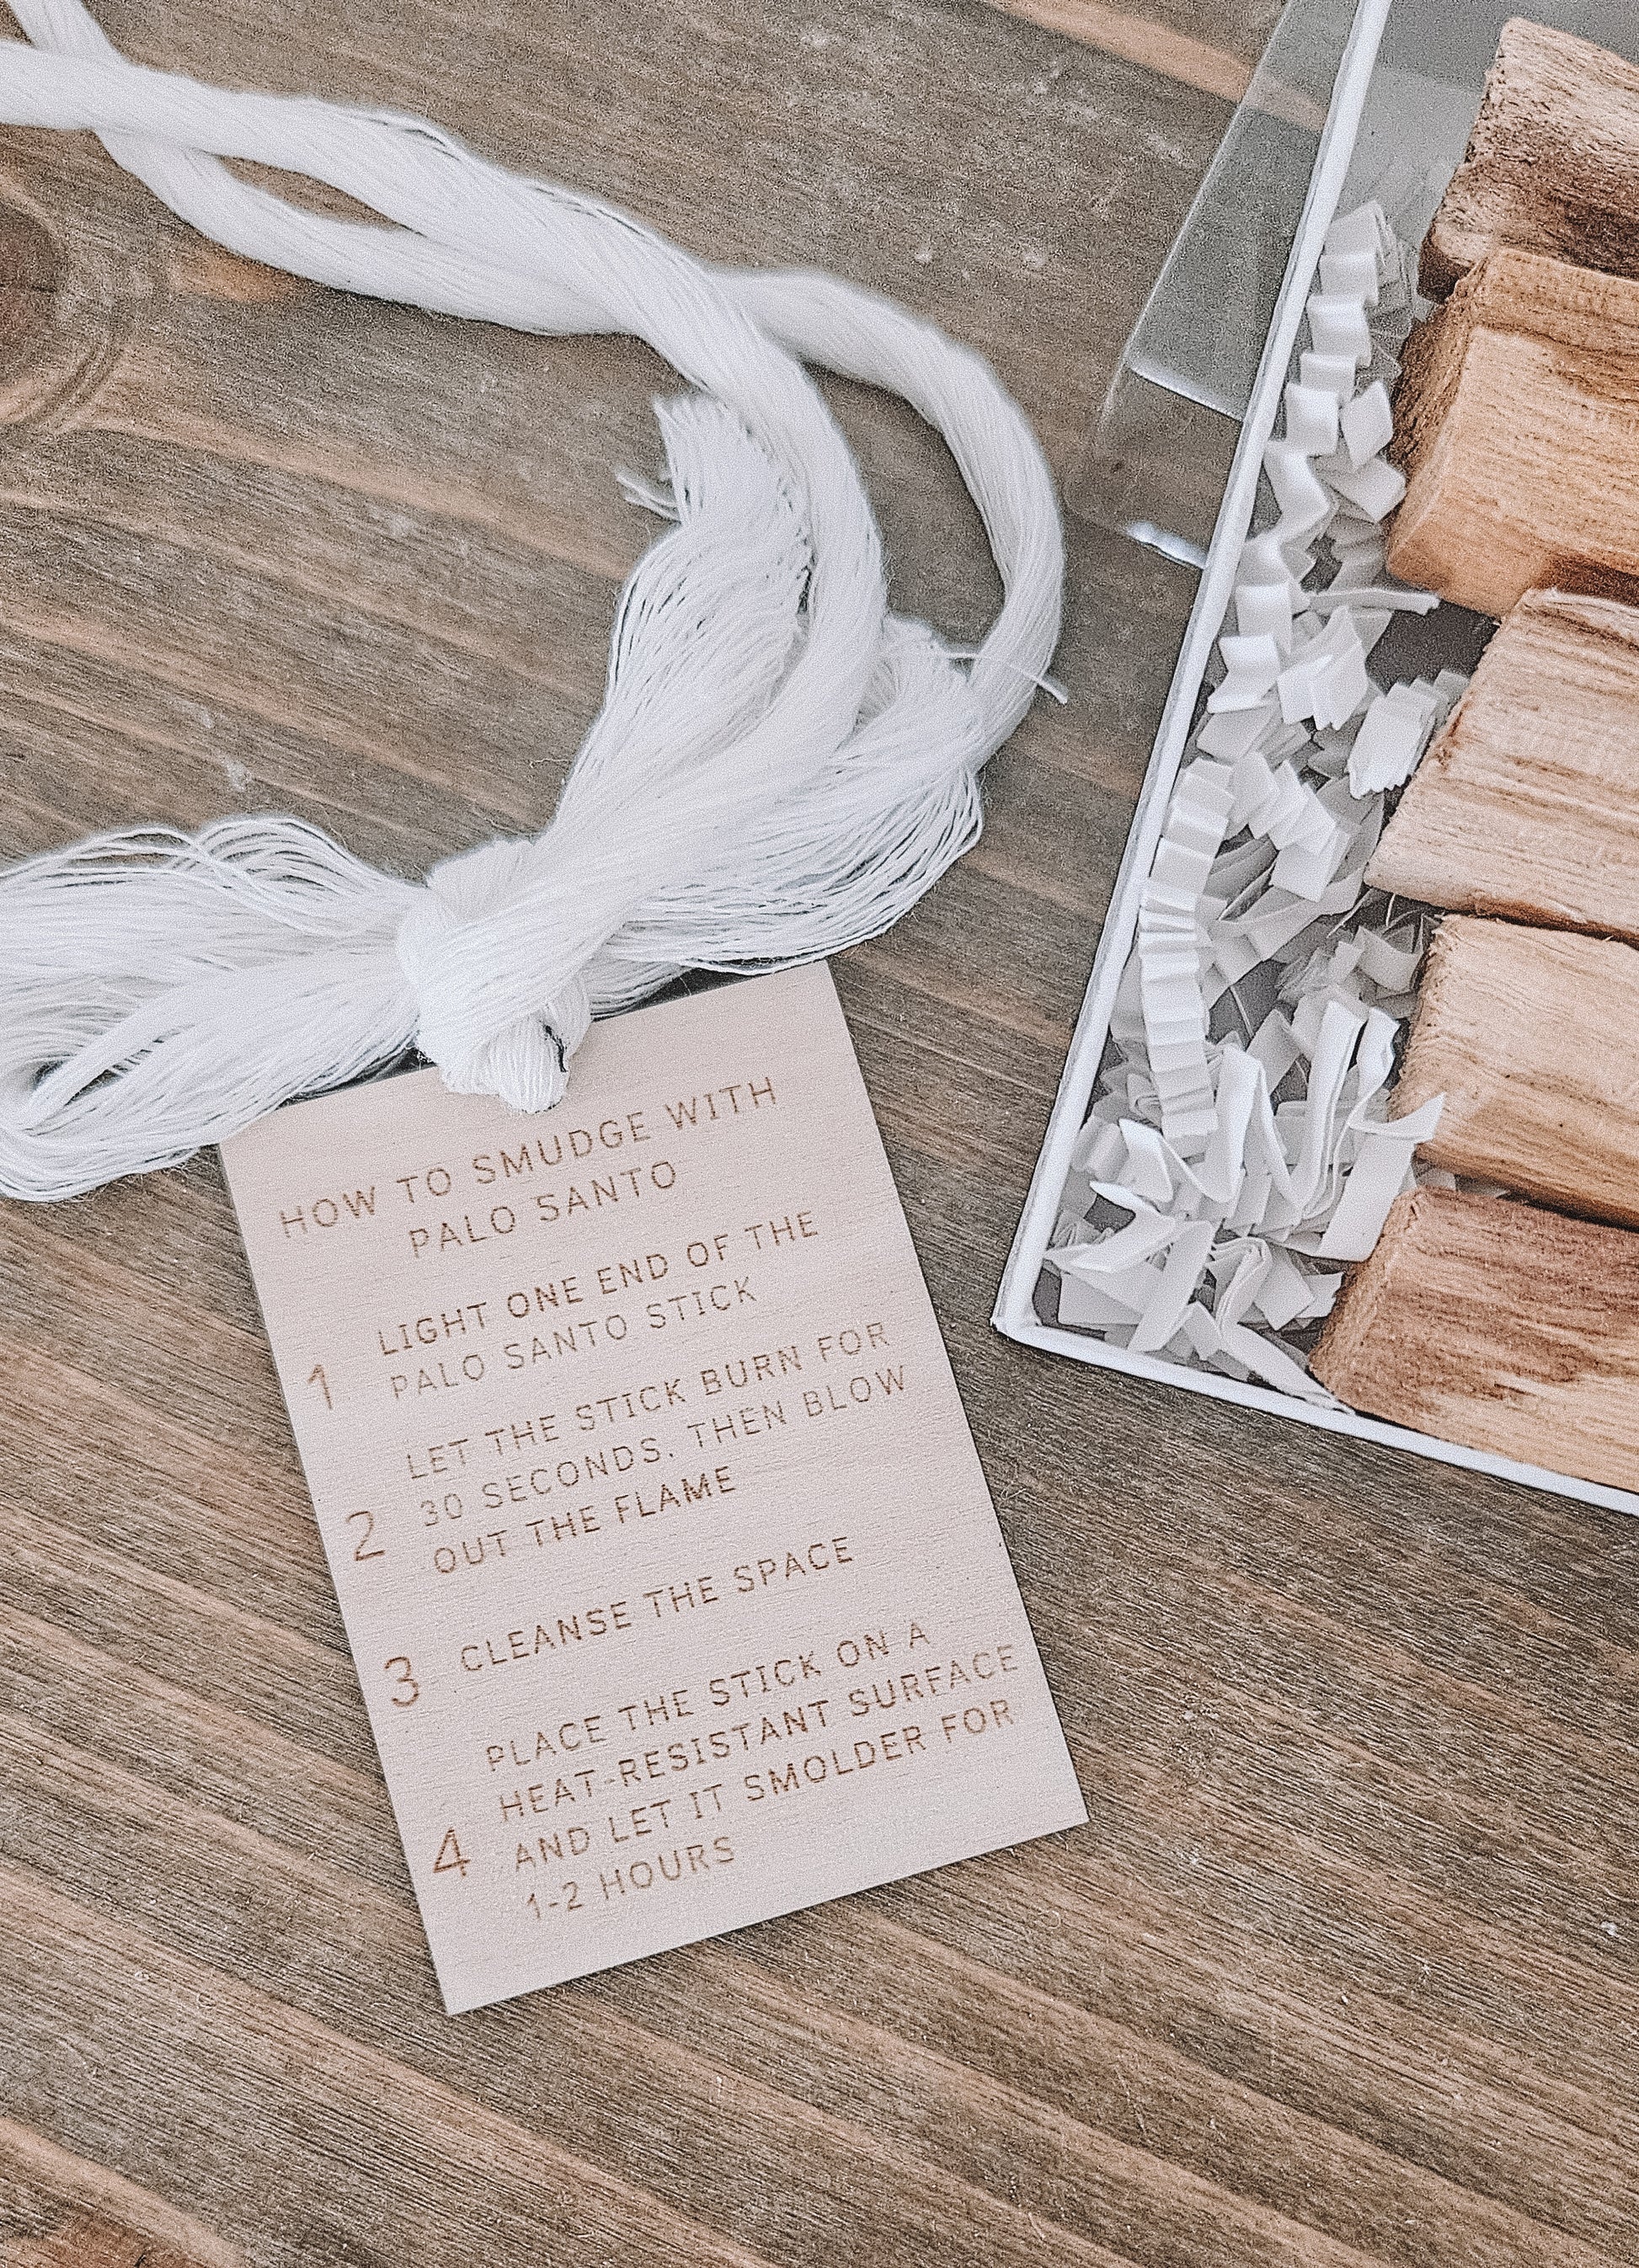 HOW TO SMUDGE WITH
PALO SANTO
1 LIGHT ONE END OF THE
PALO SANTO STICK
2 LET THE STICK BURN FOR
30 SECONDS, THEN BLOW
OUT THE FLAME
3 CLEANSE THE SPACE
4 PLACE THE STICK ON A
HEAT-RESISTANT SURFACE
AND LET IT SMOLDER FOR
1-2 HOURS